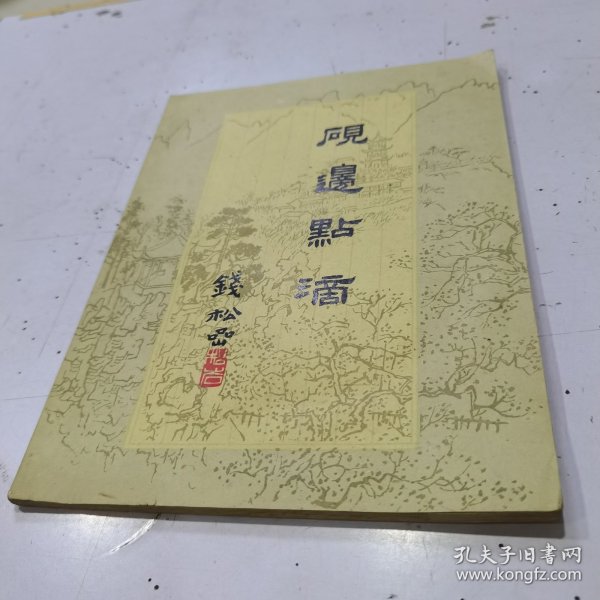 硯邊點滴
錢松嵒
松嵒
孔夫子旧书网
www.kongfz.com